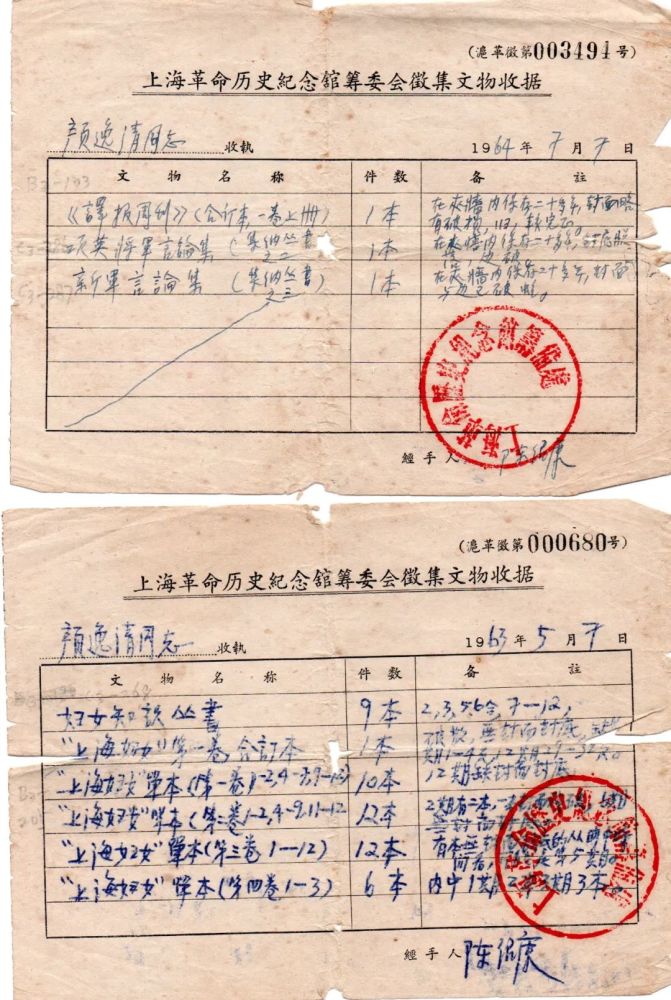 (滬革徵第003494号)
上海革命历史紀念館籌委会徵集文物收据
顏逸清同志 收執 1964年7月7日
文物名称 件数 备註
《譯报周刊》(合订本一卷上册) 1本 在夹墙内保存二十多年,封面略
有破损,
項英將軍言論集(集納丛書之二) 1本 在夹墙内保存二十多年,
新軍言論集(集納丛書之三) 1本 在夹墙内保存二十多年,封面
上海革命历史紀念館籌備處
經手人 陈绍康
(滬革徵第000680号)
上海革命历史紀念館籌委会徵集文物收据
顏逸清同志 收執 1963年5月7日
文物名称 件数 备註
妇女知识丛書 9本 2,3,5,6,7—12,
"上海妇女"第一卷合订本 1本 破散,無封面封底,
"上海妇女"單本(第一卷1-2,4-7,9-12) 10本 12期缺封面封底
"上海妇女"單本(第二卷1-2,4-9,11-12 12本 2期有二本,
"上海妇女"單本(第三卷1—12) 12本
"上海妇女"單本(第四卷1—3) 6本 内中1期2本3期3本。
經手人 陈绍康